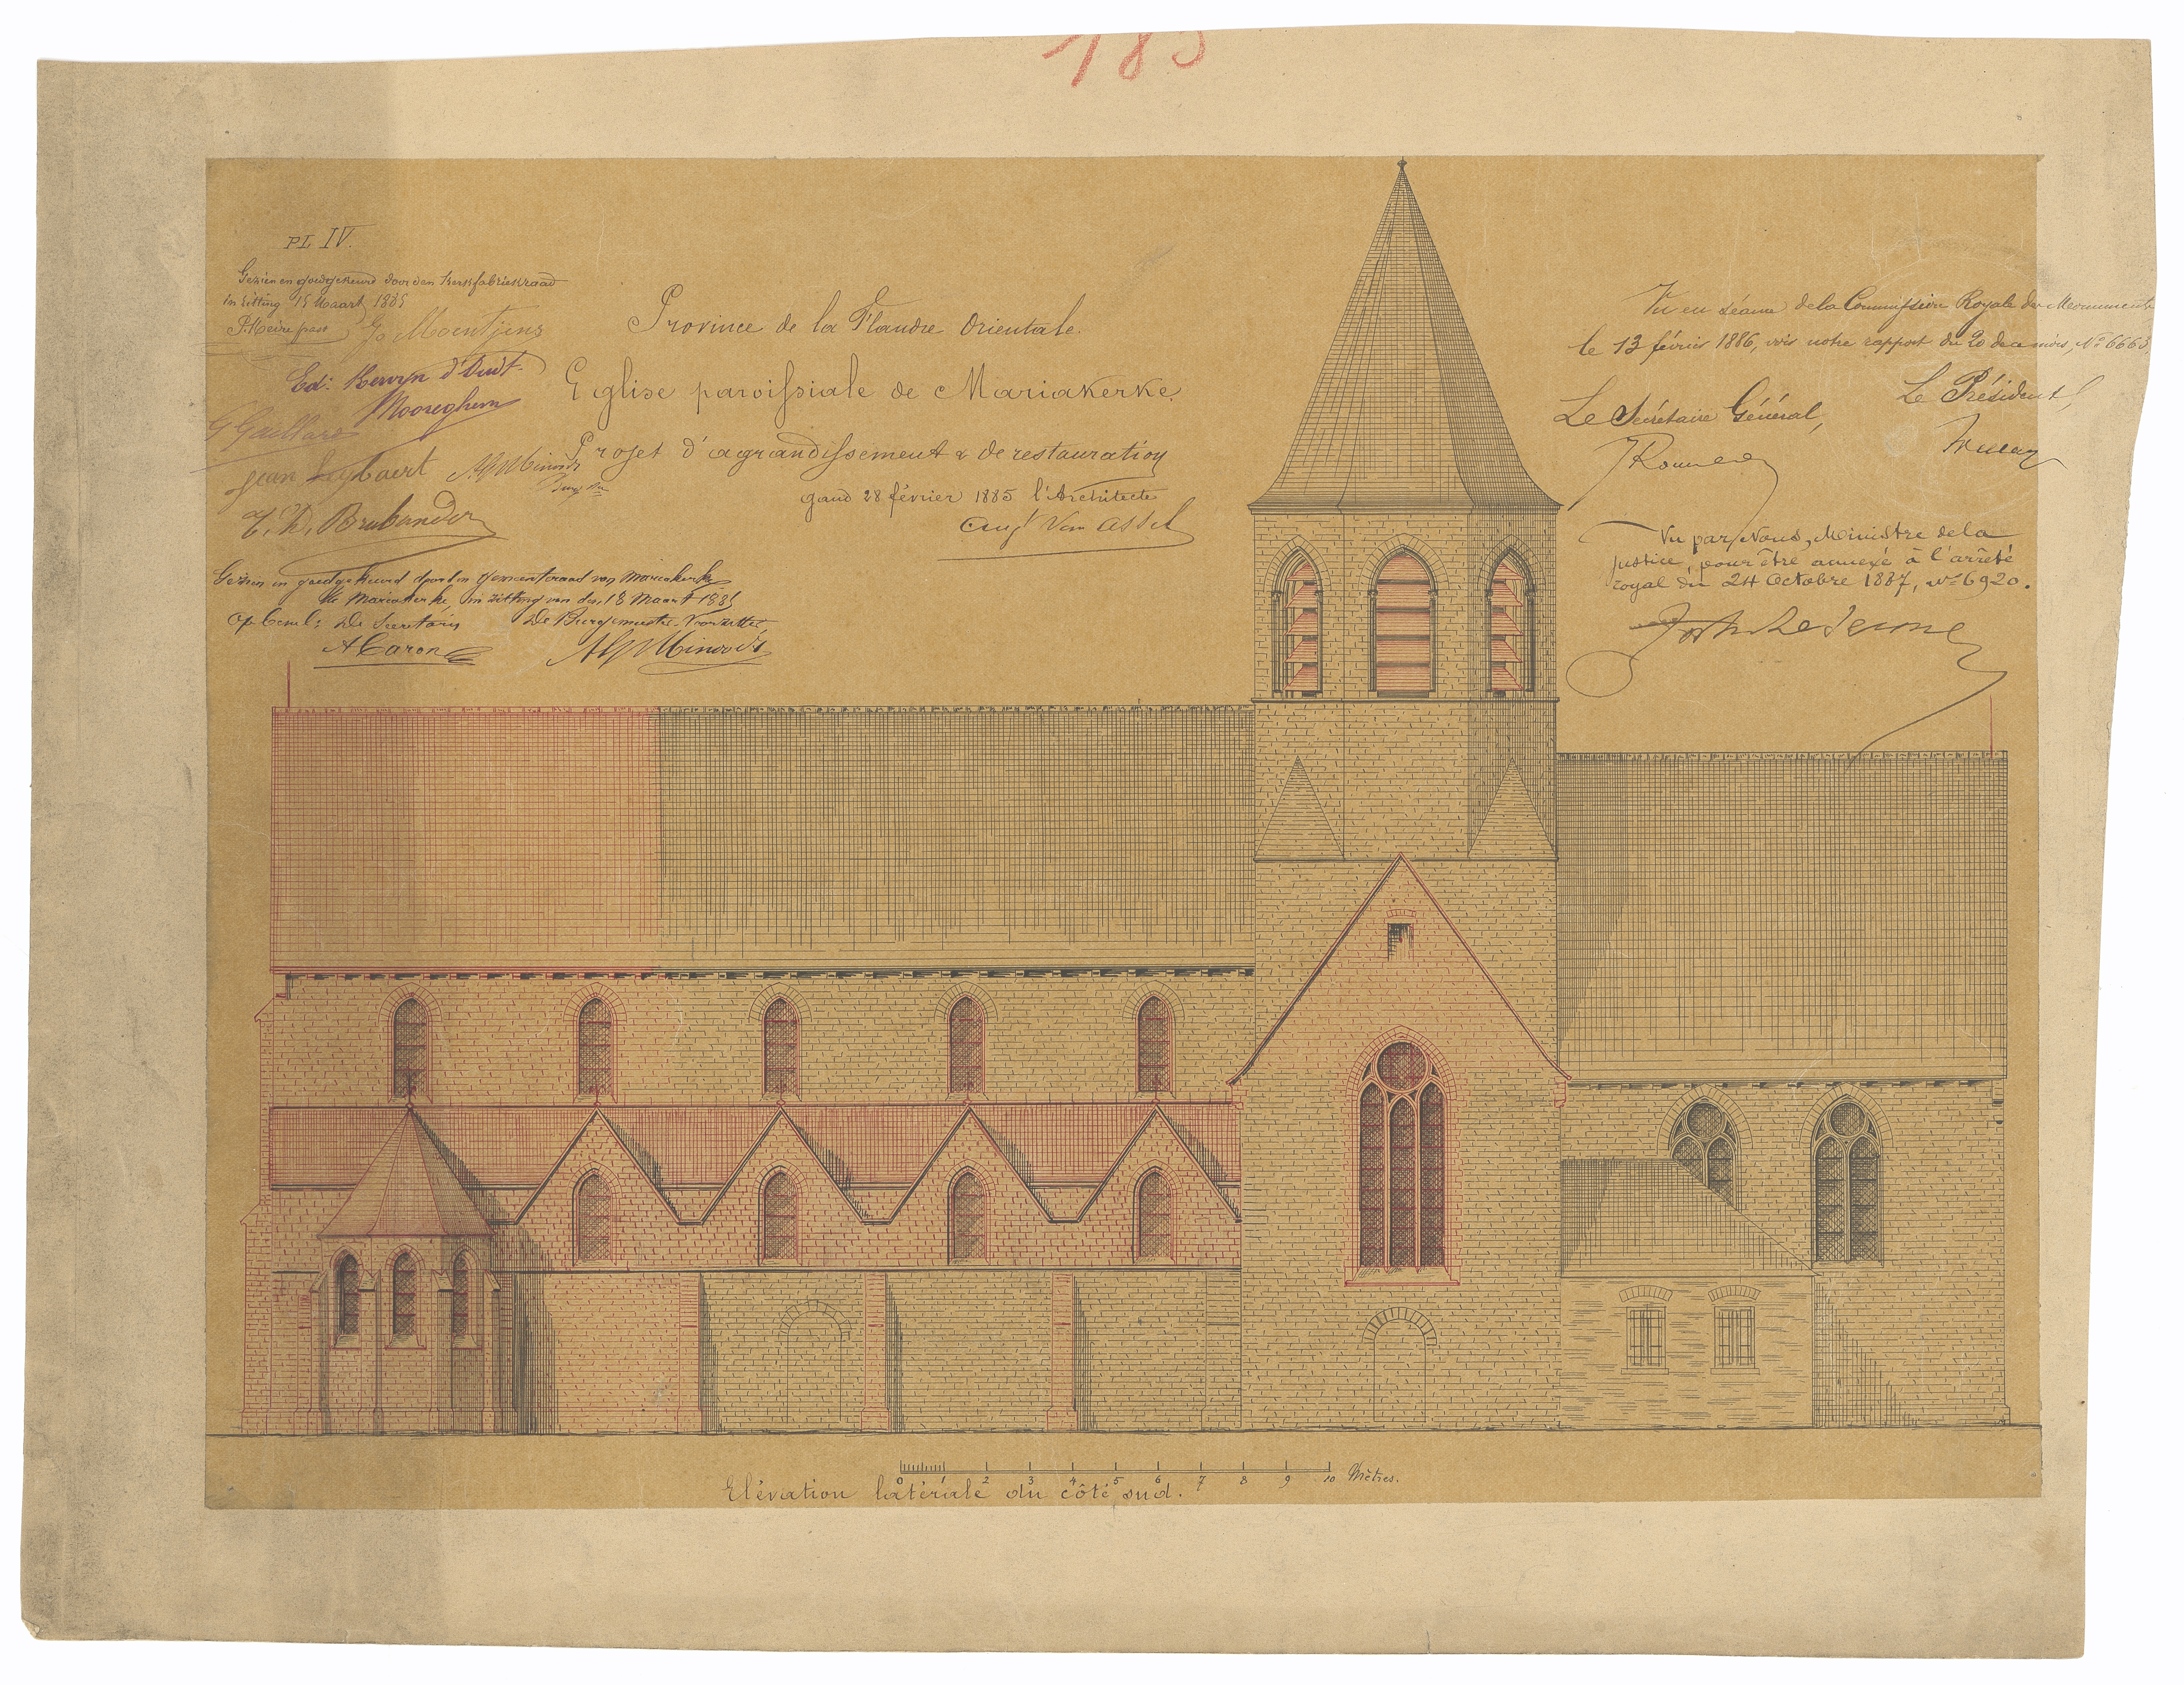 185
PL. IV.
Gezien en goedgekeurd door den Kerkfabriekraad
in zitting 15 Maart 1885
P. Meire past J. Moentjens
Edi: Kervyn d'Oudt-
Mooreghem
G Gaillard
Jean Leybaert
Province de la Flandre Orientale.
Eglise paroissiale de Mariakerke.
Projet d'agrandissement & de restauration
gand 28 février 1885 l'Architecte
Aug<sup>t</sup> Van Assel
Gezien en goedgekeurd door den gemeenteraad van Mariakerke
te Mariakerke, in zitting van den 18 Maart 1885
Op bevel: De Secretaris De Burgemeester-Voorzitter
A Caron
Vu en séance de la Commission Royale des Monuments
le 13 février 1886, vois notre rapport du 20 de ce mois, N° 6663,
Le Secrétaire Général, Le Président,
Vu par Nous, Ministre de la
Justice, pour être annexé à l'arrêté
royal du 24 Octobre 1887, n° 6920.
0 1 2 3 4 5 6 7 8 9 10 Mètres.
Elévation latérale du côté sud.